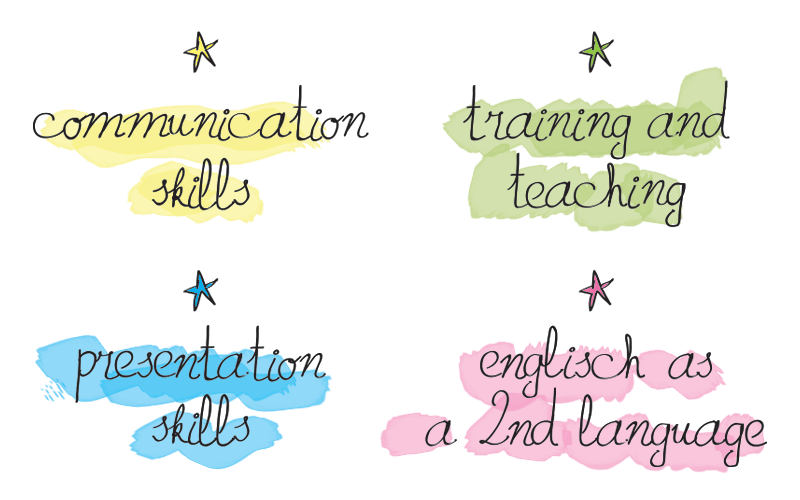 communication
skills
training and
teaching
presentation
skills
englisch as
a 2nd language